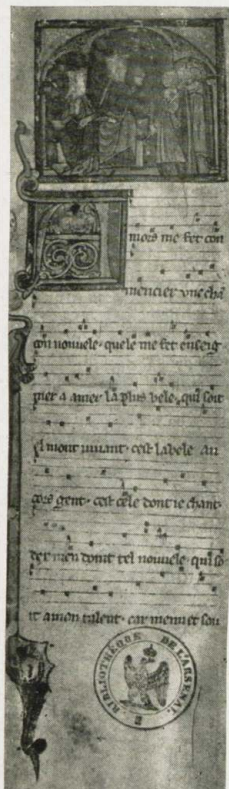 Amors me fet con
mencier vne chā
con nouuele. quele me fet enseig
nier a amer la plus bele. qui soit
el mont uiuant. cest la bele au
cors gent. cest cele dont ie chant.
dex men doint tel nouuele. qui so
it a mon talent. car menu et sou
BIBLIOTHÈQUE DE L'ARSENAL